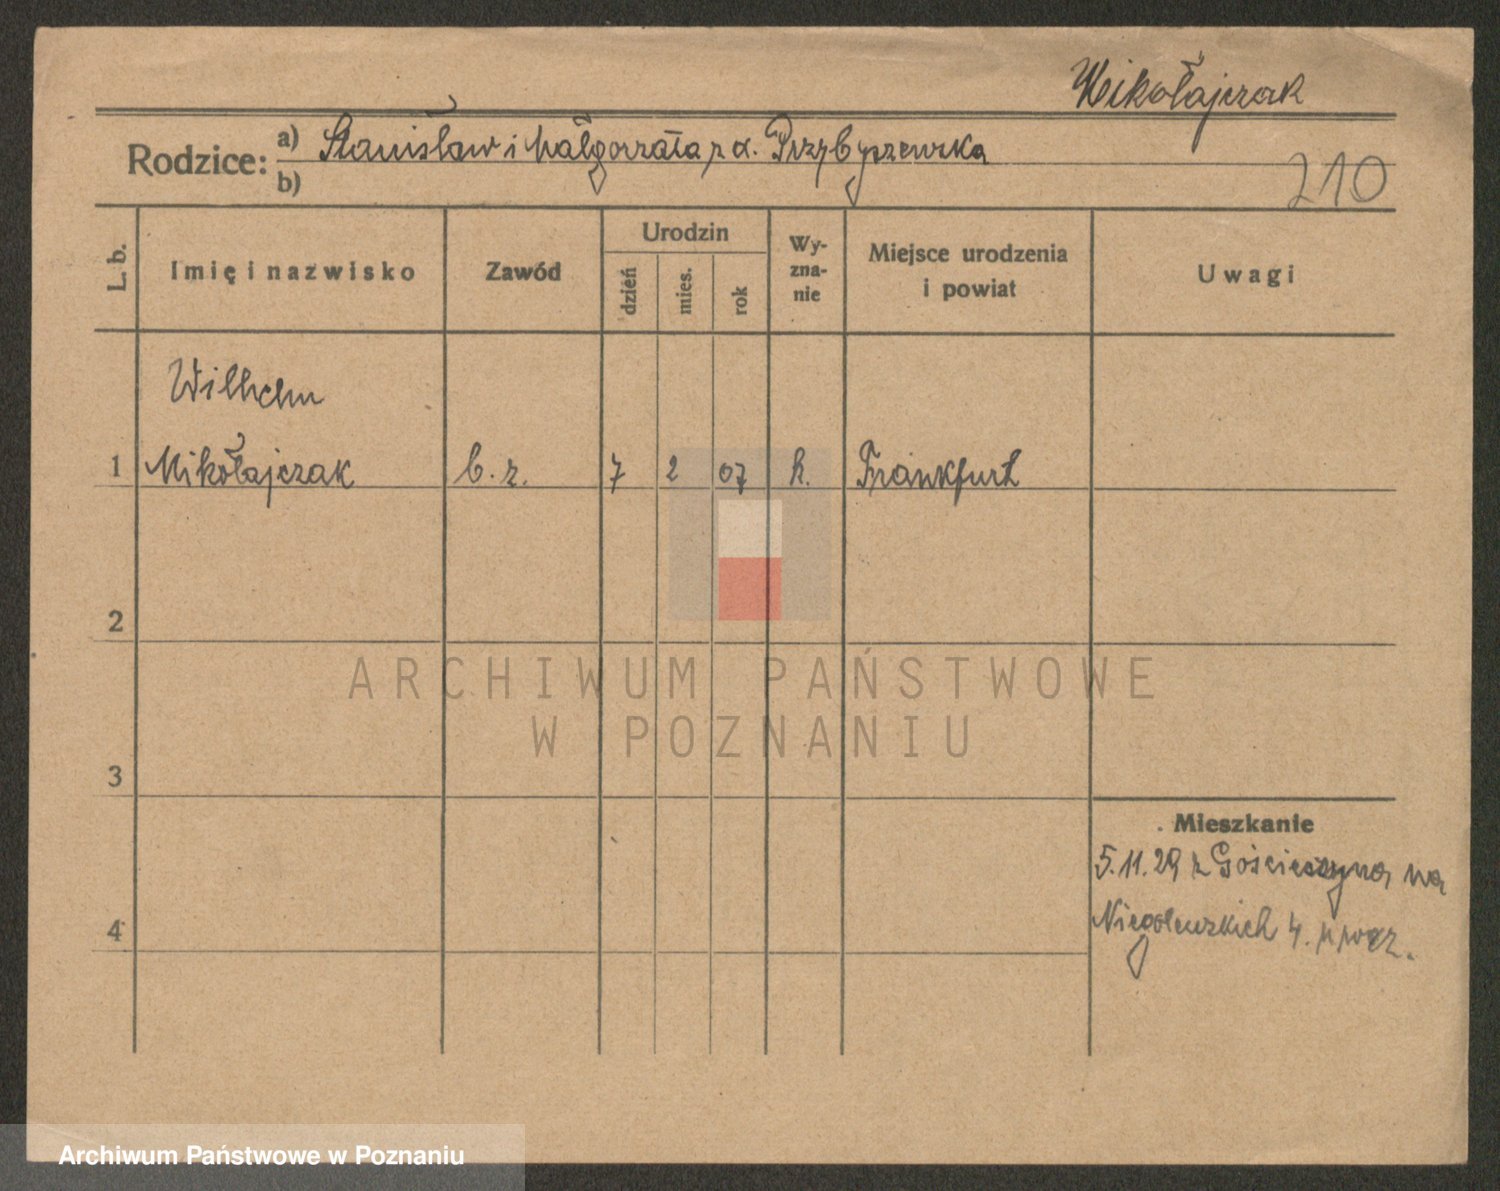 Mikołajczak
Rodzice: a) Stanisław i Małgorzata z d. Przybyszewska
b)
210
L. b.
Imię i nazwisko
Zawód
Urodzin
dzień
mies.
rok
Wy-
zna-
nie
Miejsce urodzenia
i powiat
Uwagi
Wilhelm
1 Mikołajczak b. z. 7 2 07 k. Frankfurt
2
ARCHIWUM PAŃSTWOWE
W POZNANIU
3
Mieszkanie
5.11.29 z Gościeszyna na
4 Niegolewskich 4.
Archiwum Państwowe w Poznaniu